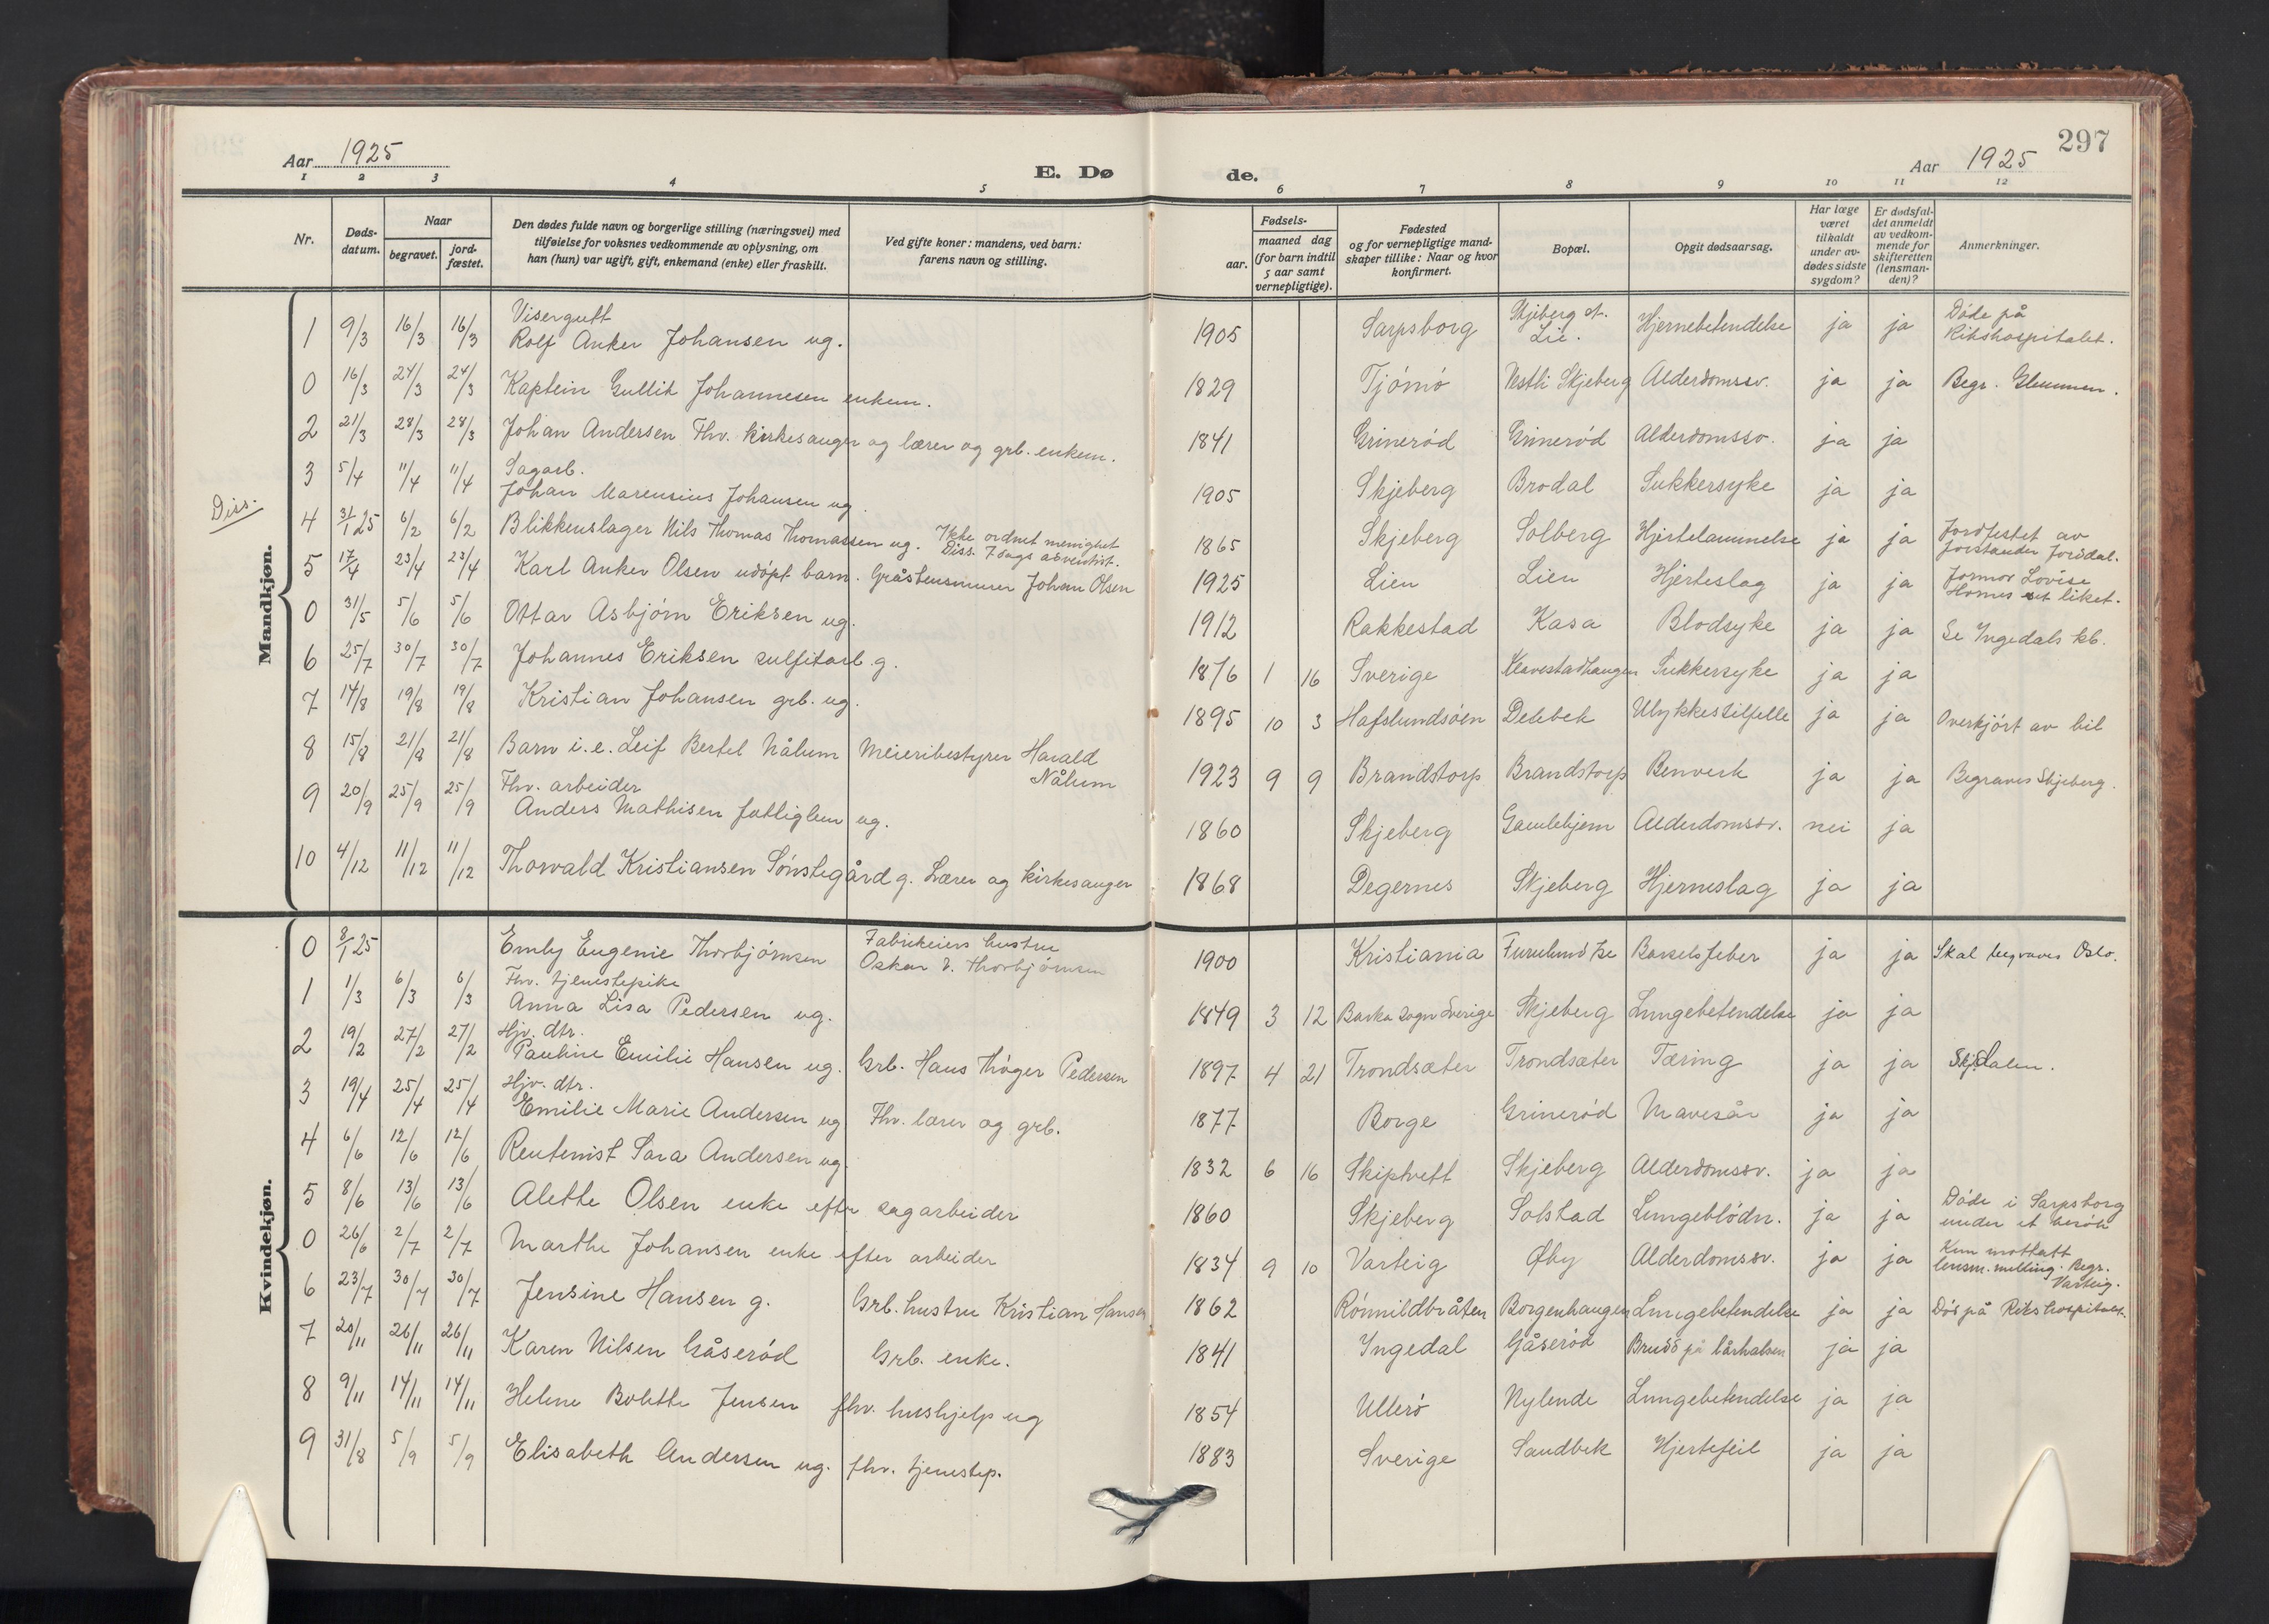 297
Aar 1925
E. Dø de.
Aar 1925
1 2 3 4 5 6 7 8 9 10 11 12
Nr.
Døds-datum.
Naar
begravet.
jord-fæstet.
Den dødes fulde navn og borgerlige stilling (næringsvei) med
tilføielse for voksnes vedkommende av oplysning, om
han (hun) var ugift, gift, enkemand (enke) eller fraskilt.
Ved gifte koner: mandens, ved barn:
farens navn og stilling.
Fødsels-
aar.
maaned dag
(for barn indtil
5 aar samt
vernepligtige).
Fødested
og for vernepligtige mand-
skaper tillike: Naar og hvor
konfirmert.
Bopæl.
Opgit dødsaarsag.
Har læge
været
tilkaldt
under av-
dødes sidste
sygdom?
Er dødsfal-
det anmeldt
av vedkom-
mende for
skifteretten
(lensman-
den)?
Anmerkninger.
Mandkjøn.
1 9/3 16/3 16/3 Visergutt Rolf Anker Johansen ug. 1905 Sarpsborg Skjeberg st. Lie. Hjernebetendelse ja ja Døde på Rikshospitalet.
0 16/3 24/3 24/3 Kaptein Gullik Johannesen enkem. 1829 Tjömö Vestli Skjeberg Alderdomssv. ja ja Begr. Glemmen.
2 21/3 28/3 28/3 Johan Andersen Fhv. kirkesanger og lærer og grb. enkem. 1841 Grineröd Grineröd Alderdomssv. ja ja
3 5/4 11/4 11/4 Sagarb. Johan Marensius Johansen ug. 1905 Skjeberg Brodal Sukkersyke ja ja
Diss. 4 31/1 25 6/2 6/2 Blikkenslager Nils Thomas Thomassen ug. Ikke ordnet menighet Diss. 7 dags adventist. 1865 Skjeberg Solberg Hjertelammelse ja ja Jordfestet av forstander Jordal.
5 17/4 23/4 23/4 Karl Anker Olsen udöpt barn. Gråstensmurer Johan Olsen 1925 Lien Lien Hjerteslag ja ja Jormor Lovise Hornes set liket.
0 31/5 5/6 5/6 Ottar Asbjörn Eriksen ug. 1912 Rakkestad Kasa Blodsyke ja ja Se Ingedals kb.
6 25/7 30/7 30/7 Johannes Eriksen sulfitarb. g. 1876 1 16 Sverige Klavestadhaugen Sukkersyke ja ja
7 14/8 19/8 19/8 Kristian Johansen grb. ug. 1895 10 3 Hafslundsöen Delebek Ulykkestilfelle ja ja Overkjört av bil
8 15/8 21/8 21/8 Barn i.e. Leif Bertel Nålum Meieribestyrer Harald Nålum 1923 9 9 Brandstorp Brandstorp Benverk ja ja Begraves Skjeberg.
9 20/9 25/9 25/9 Fhv. arbeider Anders Mathisen fattiglem ug. 1860 Skjeberg Gamlehjem Alderdomssv. nei ja
10 4/12 11/12 11/12 Thorvald Kristiansen Sönstegård g. Lærer og kirkesanger 1868 Degernes Skjeberg Hjerneslag ja ja
Kvindekjøn.
0 8/1 25 Emly Eugenie Thorbjörnsen Fabrikeiers hustru Oskar V. Thorbjörnsen 1900 Kristiania Furulund Barselsfeber ja ja Skal begraves Oslo.
1 1/3 6/3 6/3 Fhv. tjenestepike Anna Lisa Pedersen ug. 1849 3 12 Barka sogn Sverige Skjeberg Lungebetendelse ja ja
2 19/2 27/2 27/2 Hjv. dtr. Pauline Emilie Hansen ug. Grb. Hans Thöger Pedersen 1897 4 21 Trondsæter Trondsæter Tæring ja ja Skjdalen.
3 19/4 25/4 25/4 Hjv. dtr. Emilie Marie Andersen ug Fhv. lærer og grb. 1877 Borge Grineröd Mavesår ja ja
4 6/6 12/6 12/6 Rentenist Sara Andersen ug. 1832 6 16 Skiptvett Skjeberg Alderdomssv. ja ja
5 8/6 13/6 13/6 Alette Olsen enke efter sagarbeider 1860 Skjeberg Solstad Lungeblödn. ja ja Döde i Sarpsborg under et besök
0 26/6 2/7 2/7 Marthe Johansen enke efter arbeider 1834 9 10 Varteig Øby Alderdomssv. ja ja Kun mottatt lensm. melding. Begr. Varteig.
6 23/7 30/7 30/7 Jensine Hansen g. Grb. hustru Kristian Hansen 1862 Rönnildbråten Borgenhaugen Lungebetendelse ja ja Död på Rikshospitalet.
7 20/11 26/11 26/11 Karen Nilsen Gåseröd Grb. enke. 1841 Ingedal Gåseröd Brudd på lårhalsen ja ja
8 9/11 14/11 14/11 Helene Bolette Jensen fhv. hushjelp ug 1854 Ullerö Nylende Lungebetendelse ja ja
9 31/8 5/9 5/9 Elisabeth Andersen ug. fhv. tjenestep. 1883 Sverige Sandbek Hjertefeil ja ja